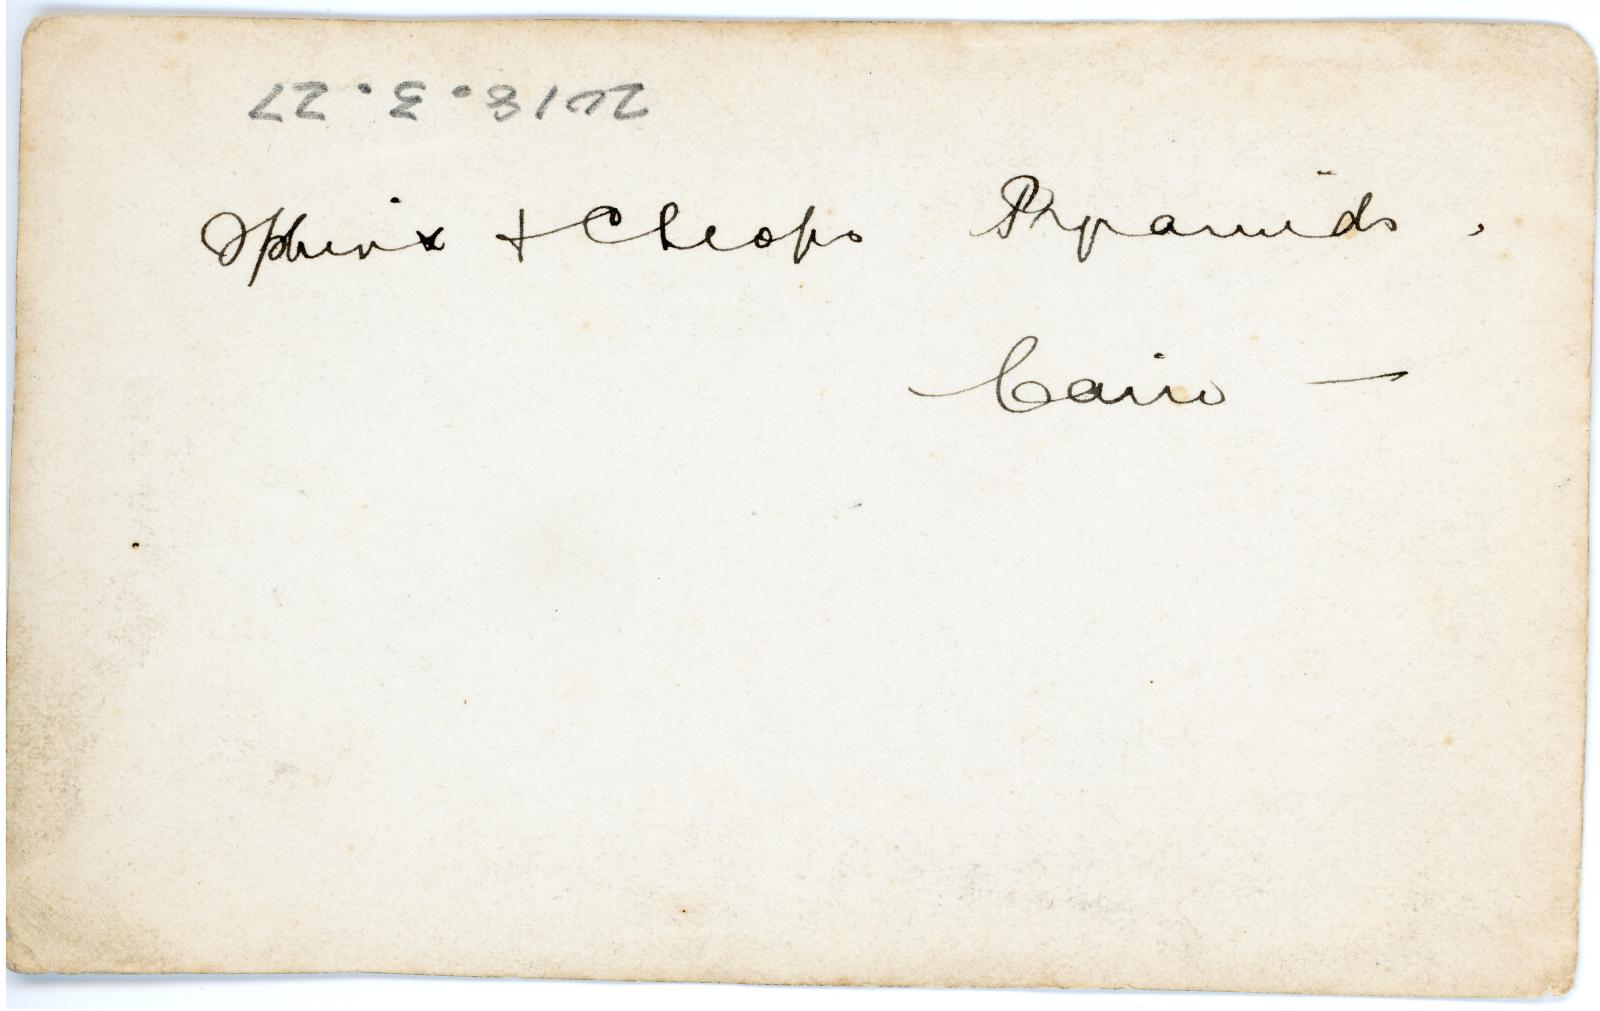 2018.3.27
Sphinx + Cheops Pyramids.
Cairo —